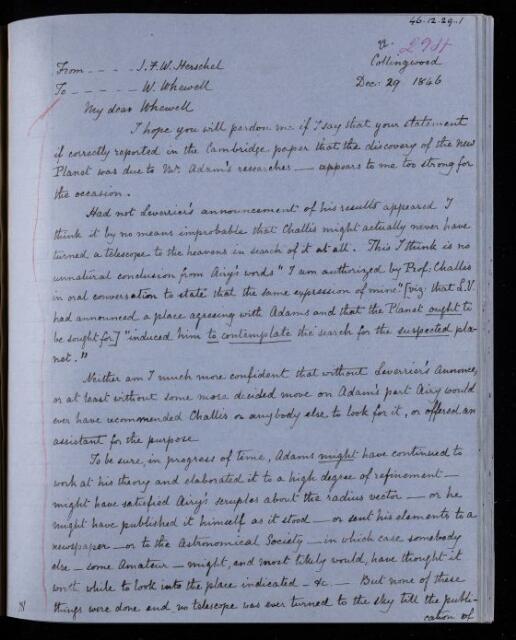 46.12.29.1
294
Collingwood
From - - - - J. F. W. Herschel
Dec. 29 1846
To - - - - - W. Whewell
My dear Whewell
I hope you will pardon me if I say that your statement
if correctly reported in the Cambridge paper that the discovery of the new
Planet was due to Mr. Adam's researches — appears to me too strong for
the occasion.
Had not Leverrier's announcement of his results appeared I
think it by no means improbable that Challis might actually never have
turned a telescope to the heavens in search of it at all. This I think is no
unnatural conclusion from Airy's words "I am authorized by Prof: Challis
in oral conversation to state that the same expression of mine" [viz: that L.V.
had announced a place agreeing with Adams and that the Planet ought to
be sought for] "induced him to contemplate the search for the suspected pla-
net."
Neither am I much more confident that without Leverrier's Announce,
or at least without some more decided move on Adam's part Airy would
ever have recommended Challis or anybody else to look for it, or offered an
assistant for the purpose
To be sure, in progress of time, Adams might have continued to
work at his theory and elaborated it to a high degree of refinement —
might have satisfied Airy's scruples about the radius vector — or he
might have published it himself as it stood — or sent his elements to a
newspaper — or to the Astronomical Society — in which case somebody
else — some Amateur — might, and most likely would, have thought it
worth while to look into the place indicated — &c. — But none of these
things were done and no telescope was ever turned to the sky till the publi-
cation of